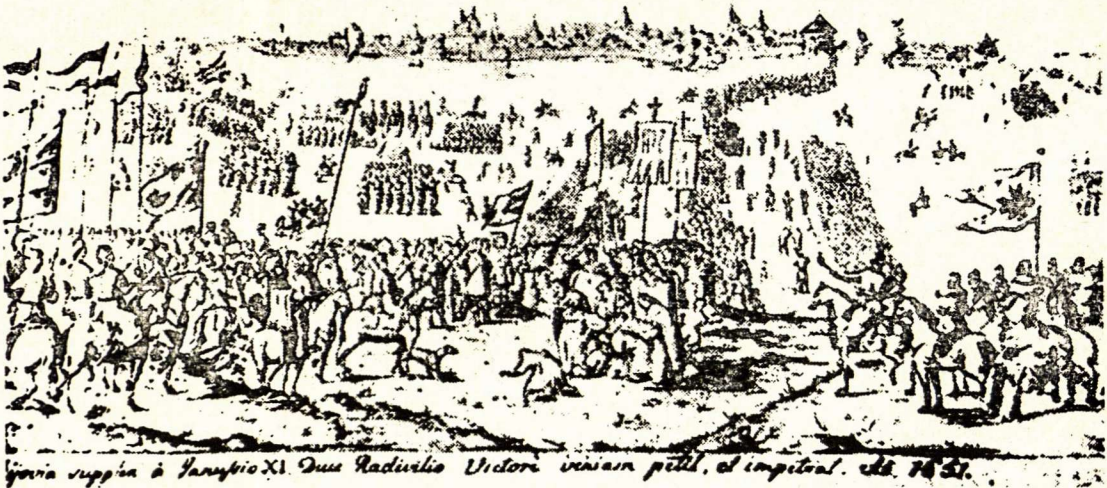 supplex à Janussio XI. Duce Radivilio Victori veniam petit, et impetrat. Aº. 1651.